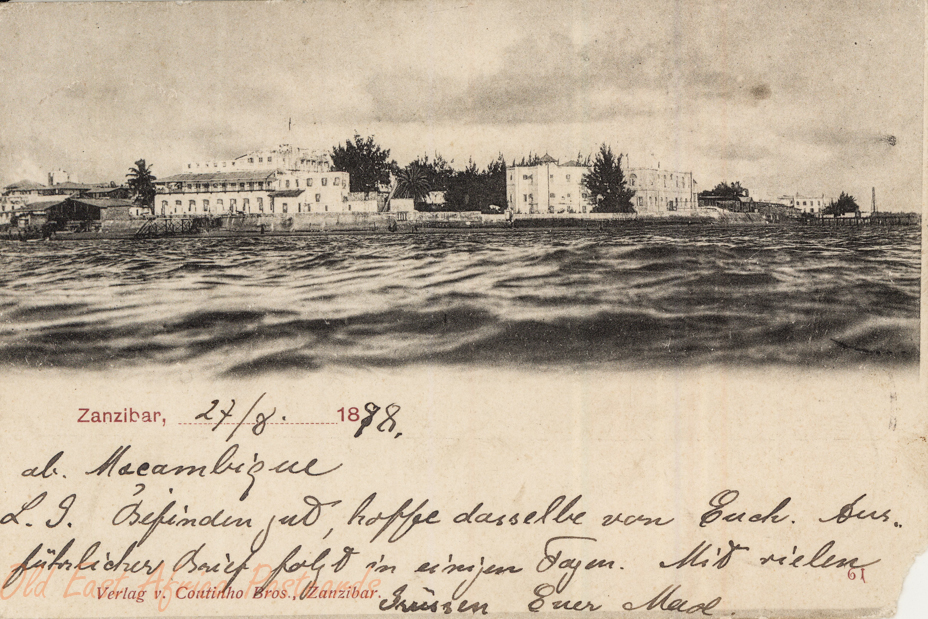 Zanzibar, 27/8. 1898.
ab. Mocambique
L. J. Befinden gut, hoffe dasselbe von Euch. Aus-
führlicher Brief folgt in einigen Tagen. Mit vielen
61
Old East Africa Postcards
Verlag v. Coutinho Bros., Zanzibar.
Grüssen Euer